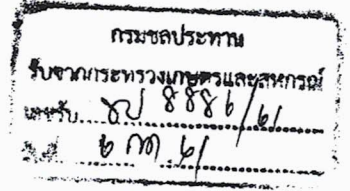 กรมชลประทาน
รับจากกระทรวงเกษตรและสหกรณ์
เลขรับ ชป 8886/61
วันที่ ๖ ๖/